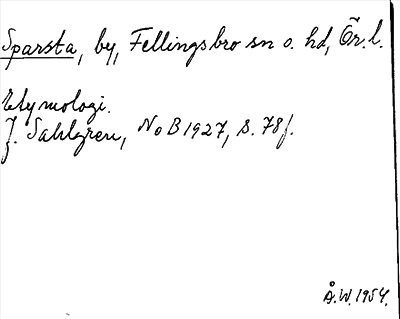 Sparsta, by, Fellingsbro sn o. hd, Ör. l.
Etymologi.
J. Sahlgren, NoB 1927, s. 78f.
Å.W. 1954.